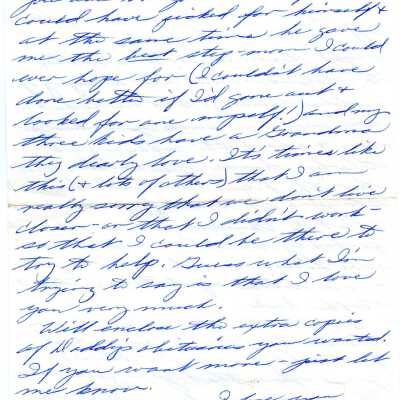 could have picked for himself &
at the same time he gave
me the best step-mom I could
ever hope for (I couldn't have
done better if I'd gone out &
looked for one myself!) and my
three kids have a Grandma
they dearly love. It's times like
this (& lots of others) that I am
really sorry that we don't live
closer - or that I didn't work -
so that I could be there to
try to help. Guess what I'm
trying to say is that I love
you very much.
Will enclose the extra copies
of Daddy's obituaries you wanted.
If you want more - just let
me know.
I love you